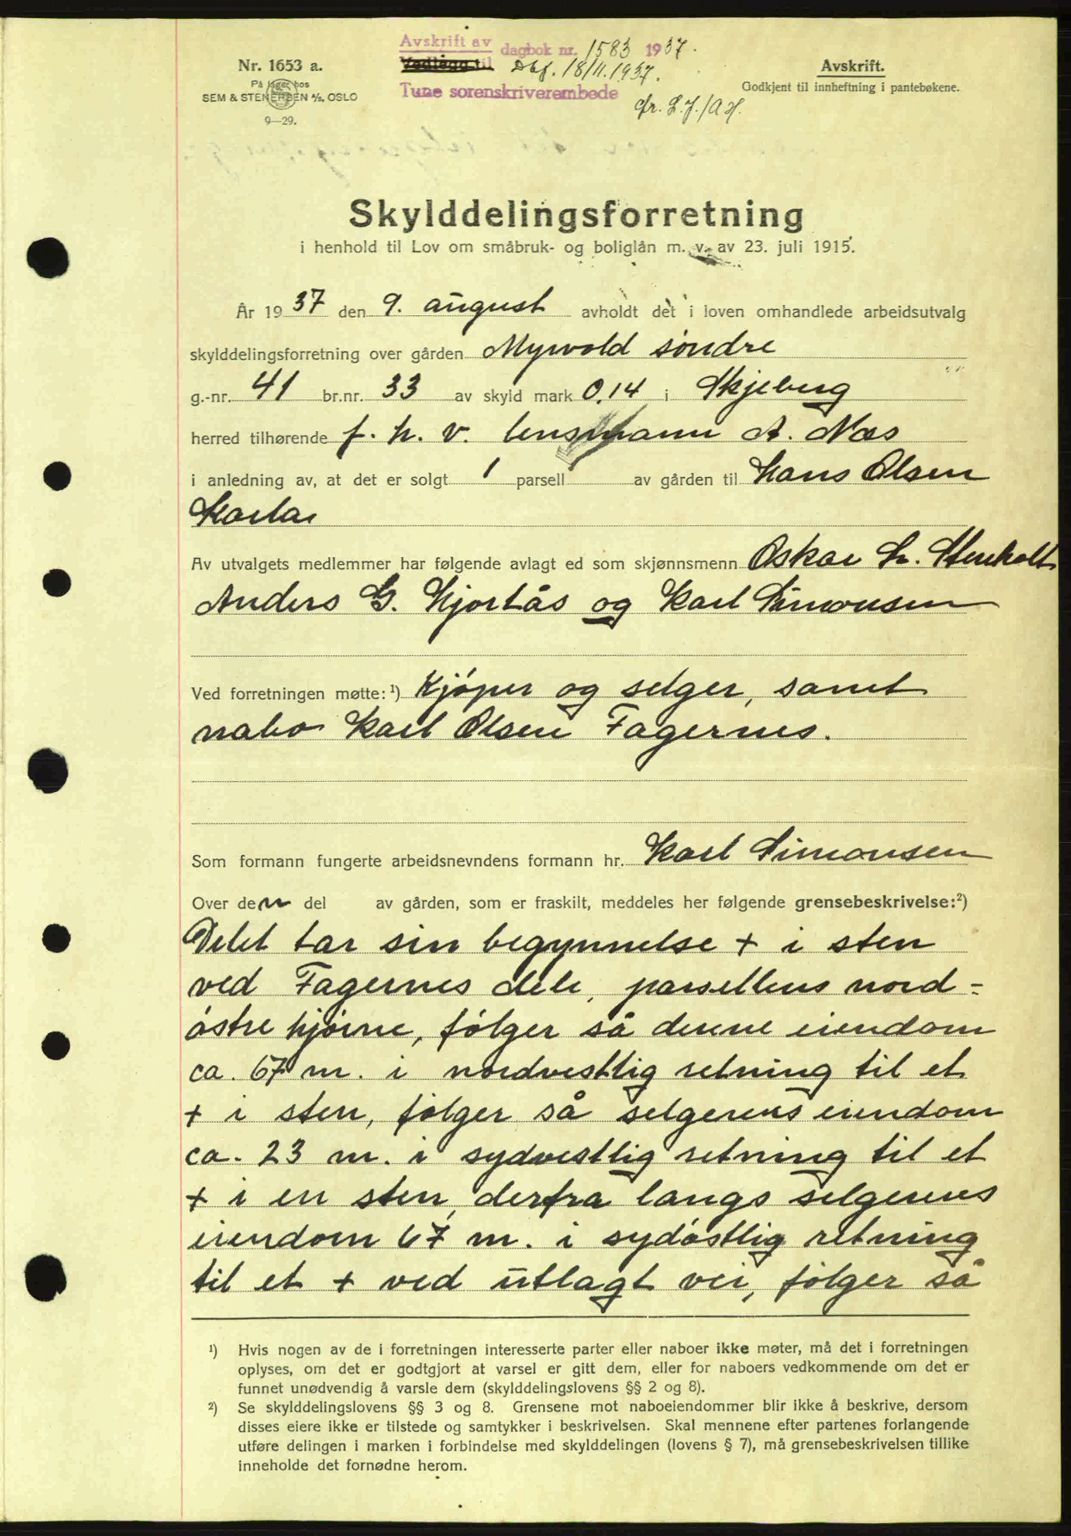 Avskrift av dagbok nr. 1583 1937.
Vedlegg til Dbf. 18/11.1937.
Tune sorenskriverembede
Nr. 1653 a.
På lager hos
SEM & STENERSEN A/S, OSLO
9—29.
Avskrift.
Godkjent til innheftning i pantebøkene.
Skylddelingsforretning
i henhold til Lov om småbruk- og boliglån m. v. av 23. juli 1915.
År 1937 den 9. august avholdt det i loven omhandlede arbeidsutvalg
skylddelingsforretning over gården Myrvold søndre
g.-nr. 41 br.nr. 33 av skyld mark 0,14 i Skjeberg
herred tilhørende f. h. v. lensmann A. Næs
i anledning av, at det er solgt 1 parsell av gården til Hans Olsen
Av utvalgets medlemmer har følgende avlagt ed som skjønnsmenn Oskar Stenholt
Anders G. Hjortås og Karl Simonsen
Ved forretningen møtte:¹) Kjøper og selger, samt
nabo Karl Olsen Fagernes.
Som formann fungerte arbeidsnevndens formann hr. Karl Simonsen
Over den del av gården, som er fraskilt, meddeles her følgende grensebeskrivelse:²)
Delet tar sin begynnelse + i sten
ved Fagernes dele, parsellens nord-
østre hjørne, følger så denne eiendom
ca. 67 m. i nordvestlig retning til et
+ i sten, følger så selgerens eiendom
ca. 23 m. i sydvestlig retning til et
+ i en sten, derfra langs selgerens
eiendom 67 m. i sydøstlig retning
til et + ved utlagt vei, følger så
¹) Hvis nogen av de i forretningen interesserte parter eller naboer ikke møter, må det i forretningen
oplyses, om det er godtgjort at varsel er gitt dem, eller for naboers vedkommende om det er
funnet unødvendig å varsle dem (skylddelingslovens §§ 2 og 8).
²) Se skylddelingslovens §§ 3 og 8. Grensene mot naboeiendommer blir ikke å beskrive, dersom
disses eiere ikke er tilstede og samtykker i beskrivelsen. Skal mennene efter partenes forlangende
utføre delingen i marken i forbindelse med skylddelingen (lovens § 7), må grensebeskrivelsen tillike
inneholde det fornødne herom.